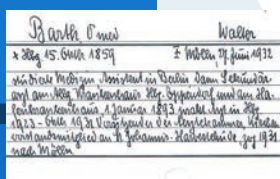 Barth Dr med Walter
* Hbg 15. Oktbr 1859 ‡ Mölln, 27. Juni 1932
studierte Medizin Assistent in Berlin Dann Sekundär
arzt am Allg Krankenhaus Hbg. Eppendorf und am Ha-
fenkrankenhaus, 1. Januar 1893 prakt. Arzt in Hbg
1923 - Oktbr 1931 Vorsitzender der Kirchen
vorstandsmitglied an St Johannis-Harvestehude, zog 1931
nach Mölln